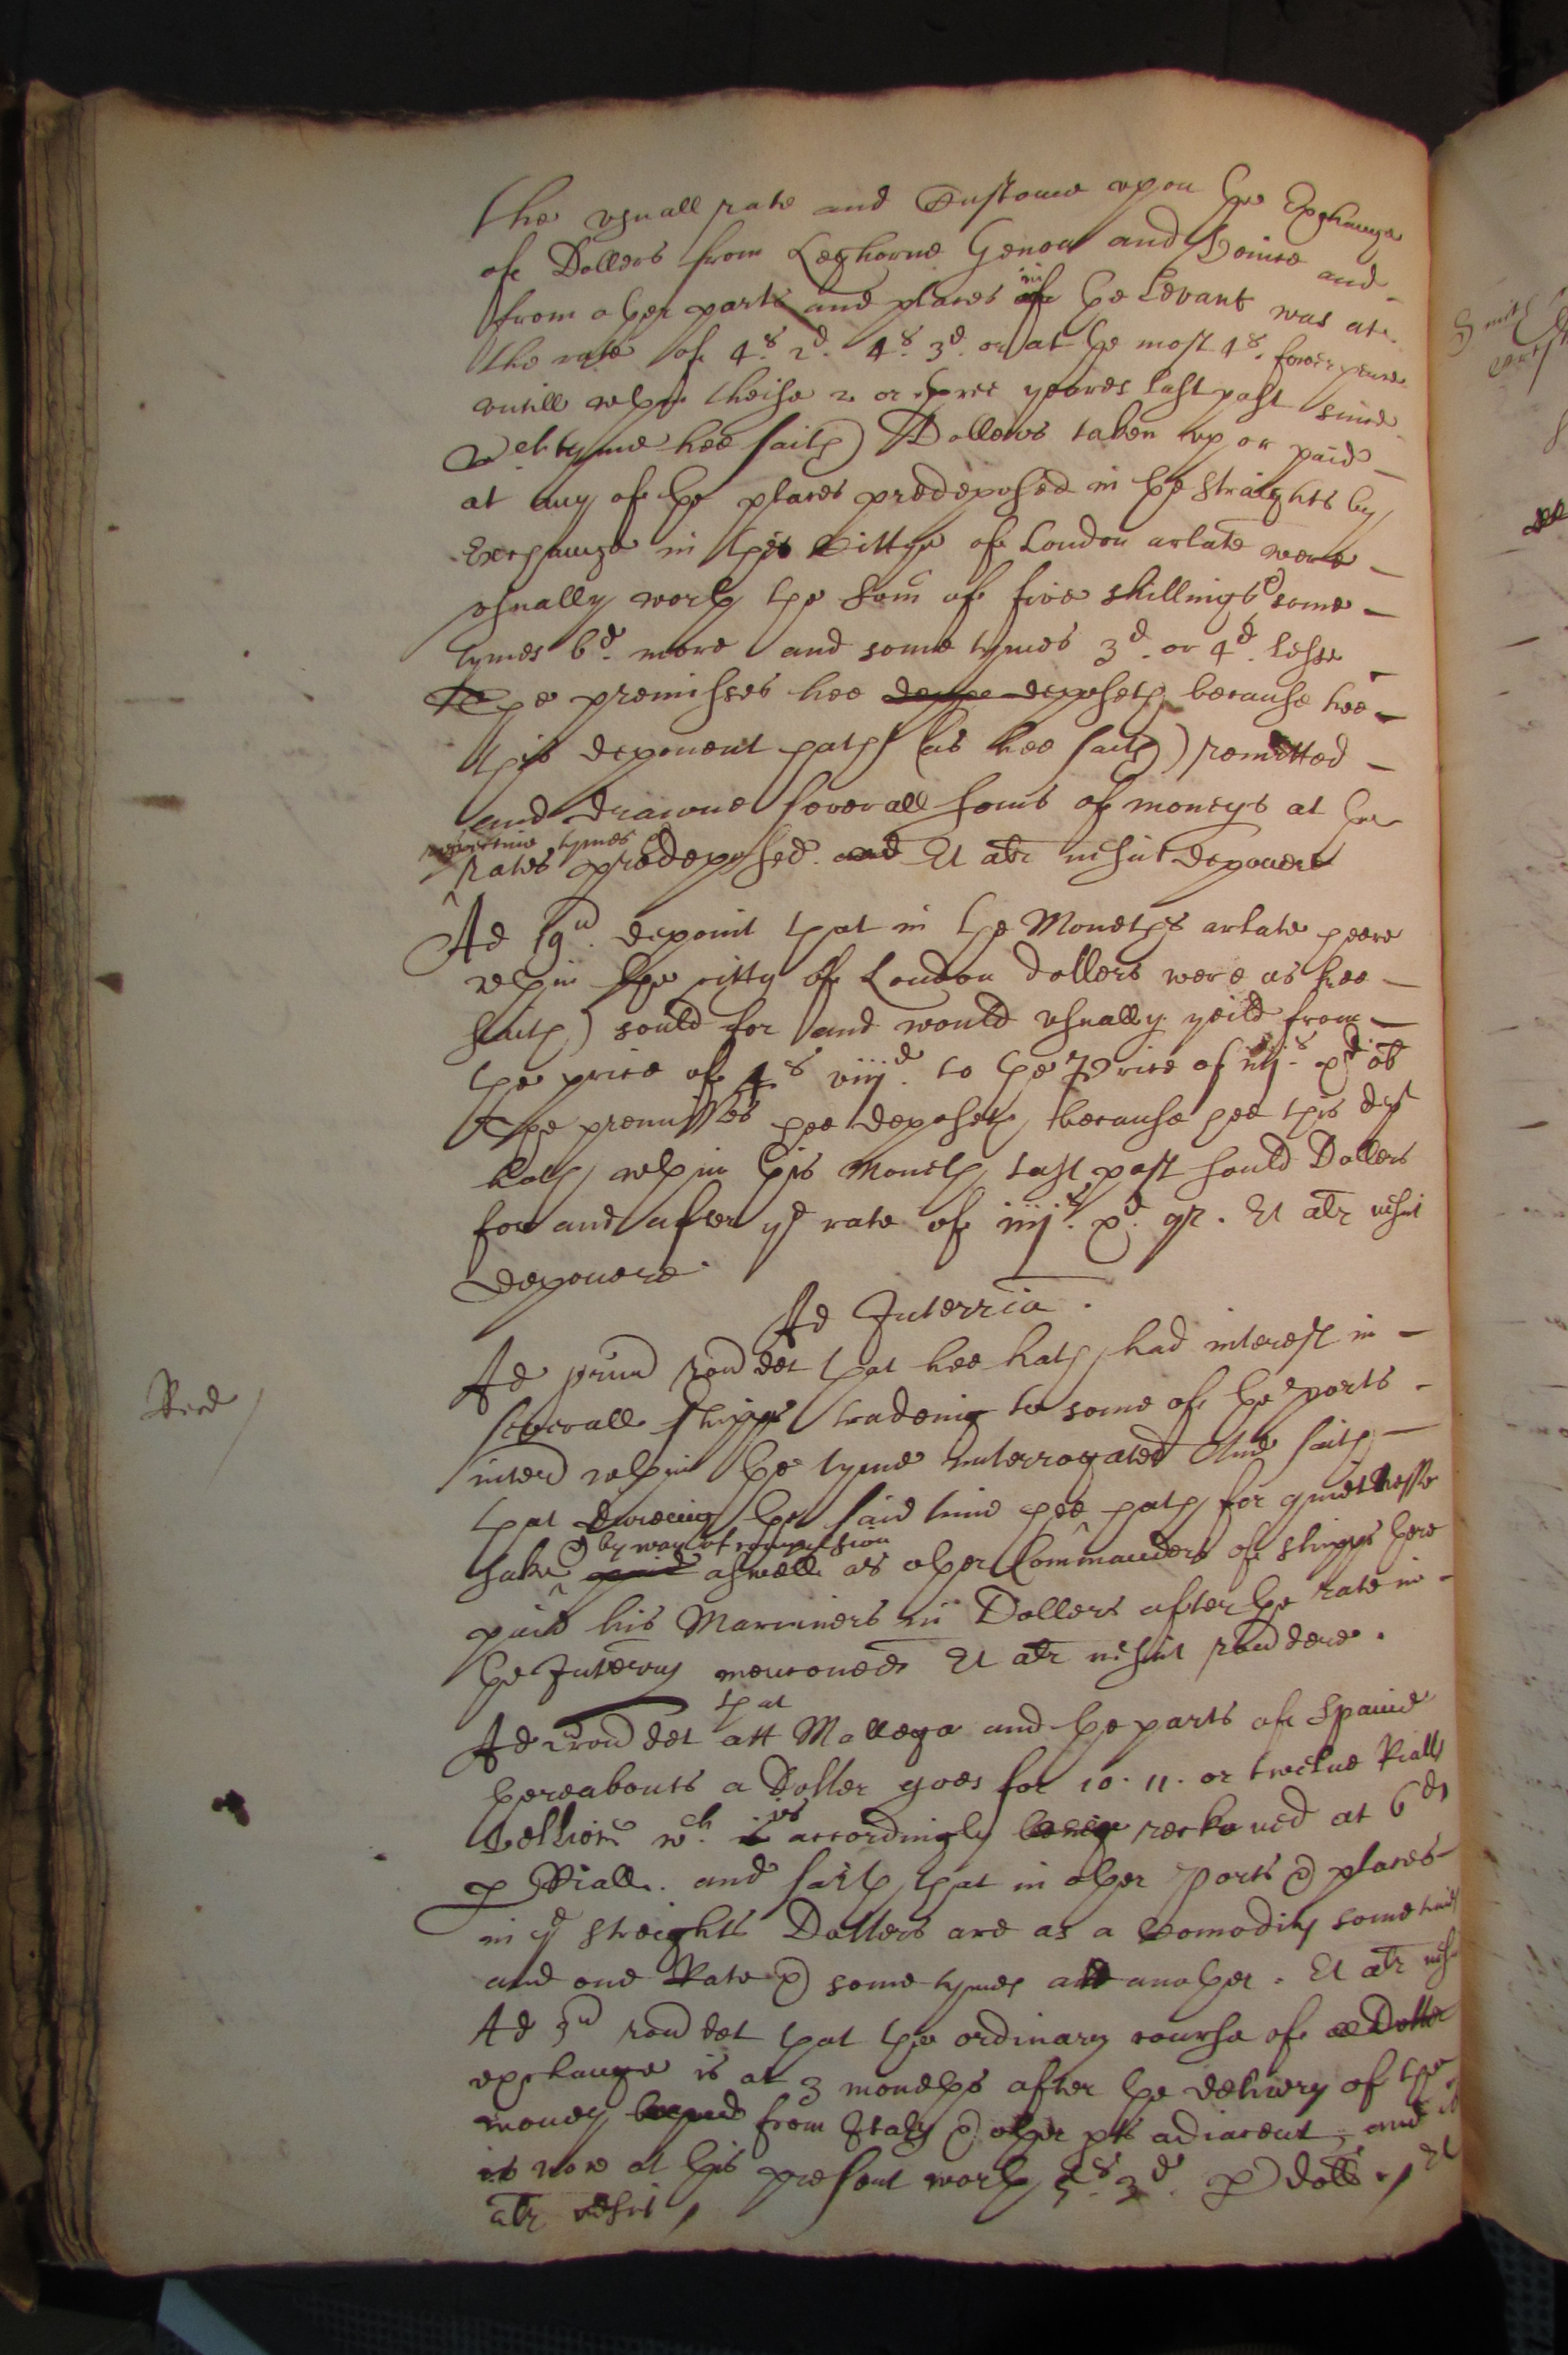 the vsuall rate and Custome vpon the Exchange
of Dollers from Leghorne Genoa and Venice and
from other parts and places in the Levant was at
the rate of 4s. 2d. 4s. 3d. or at the most 4s. fower pence
vntill wthin theise 2 or three yeares last past since
wch tyme hee saith Dollers taken vp or paid
at any of the places predeposed in the straights by
Exchange in this Cittye of London arlate were
vsually worth the som of five shillings & some
tymes 6d. more and some tymes 3d. or 4d. lesse
The premisses hee deposeth because hee
this deponent hath (as hee saith) remitted
and drawne severall soms of moneys at the
respective tymes
rates predeposed. and Et alr nescit deponere
Ad 19u. deponit that in the Moneths arlate heere
wthin the citty of London dollers were as hee
saith) sould for and would vsually yeild from
the price of 4s viijd. to the Price of iiijs. xd ob
The premisses hee deposeth because hee this dept
hath wthin this Moneth last past sould Dollers
for and after ye rate of iiijs. xd. qr. Et alr nescit
deponere.
Ad Interria.
Ad primu rondet that hee hath had interest in
Rive
severall shipps tradeing to some of the ports
interd wthin the tyme interrogated And saith
that dureing the said time hee hath for quietnesse
& by way of compulsion
sake paid aswell as other Commanders of shipps have
paid his Marriners in Dollers after the rate in
the Interry menconed Et alr nescit rondere.
that
Ad 2 rondet att Mallega and the parts of Spaine
thereabouts a Doller goes for 10. 11. or twelve Rialls
vellion wch. is accordingly being reckoned at 6d
p Riall. and saith that in other Ports & places
in ye streights Dollers are as a Comodity sometimes
att one Rate & some tymes att another. Et alr nesc
Ad 3u rondet that the ordinary course of a Doller
exchange is at 3 moneths after the delivery of the
money from Italy & other pts adiacent, and it
is now at this present worth 5s. 3d. p doller, Et
alr nescit,